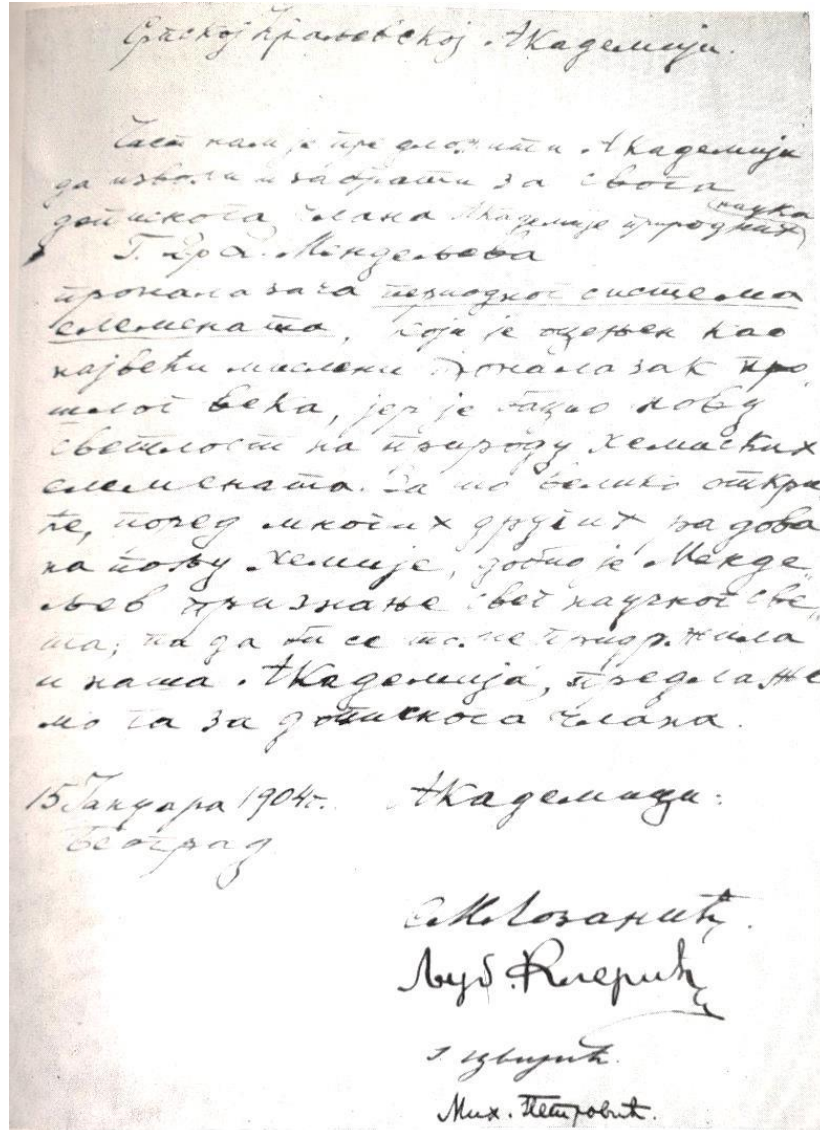 Српској Краљевској Академији.
Част нам је предложити Академији
да изволи изабрати за свога
дописнога члана Академије природних наука
Г. Др Д. Мендељева
проналазача периодног система
елемената, који је оцењен као
највећи мислени проналазак про„
шлог века, јер је бацио нову
светлост на природу хемиских
елемената. За то велико откри
ће, поред многих других радова
на пољу Хемије, добио је Менде„
љев признање свег научног све„
та; па да би се томе придржила
и наша Академија, предлаже
мо га за дописнога члана.
15 Јануара 1904 г. Академици:
Београд
С.М.Лозанић
Љуб. Клерић
Ј. Цвијић.
Мих. Петровић.